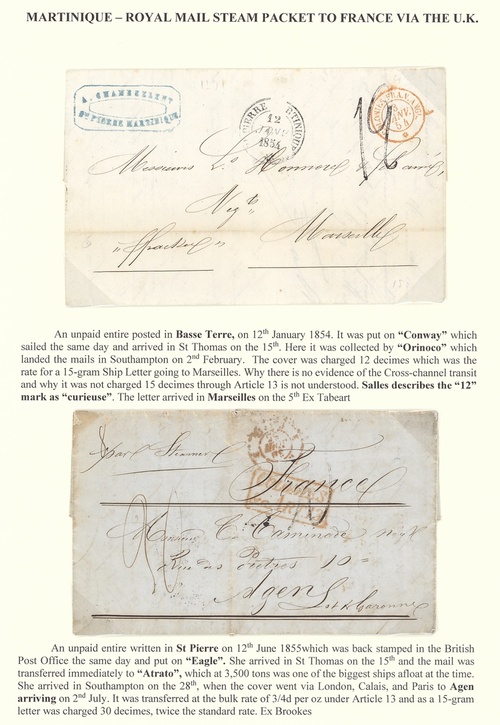 MARTINIQUE – ROYAL MAIL STEAM PACKET TO FRANCE VIA THE U.K.
St PIERRE MARTINIQUE
12
JANV.
1854
12
Messieurs
Marseille
An unpaid entire posted in Basse Terre, on 12th January 1854. It was put on “Conway” which
sailed the same day and arrived in St Thomas on the 15th. Here it was collected by “Orinoco” which
landed the mails in Southampton on 2nd February. The cover was charged 12 decimes which was the
rate for a 15-gram Ship Letter going to Marseilles. Why there is no evidence of the Cross-channel transit
and why it was not charged 15 decimes through Article 13 is not understood. Salles describes the “12”
mark as “curieuse”. The letter arrived in Marseilles on the 5th Ex Tabeart
par Steamer
France
Agen
An unpaid entire written in St Pierre on 12th June 1855which was back stamped in the British
Post Office the same day and put on “Eagle”. She arrived in St Thomas on the 15th and the mail was
transferred immediately to “Atrato”, which at 3,500 tons was one of the biggest ships afloat at the time.
She arrived in Southampton on the 28th, when the cover went via London, Calais, and Paris to Agen
arriving on 2nd July. It was transferred at the bulk rate of 3/4d per oz under Article 13 and as a 15-gram
letter was charged 30 decimes, twice the standard rate. Ex Brookes